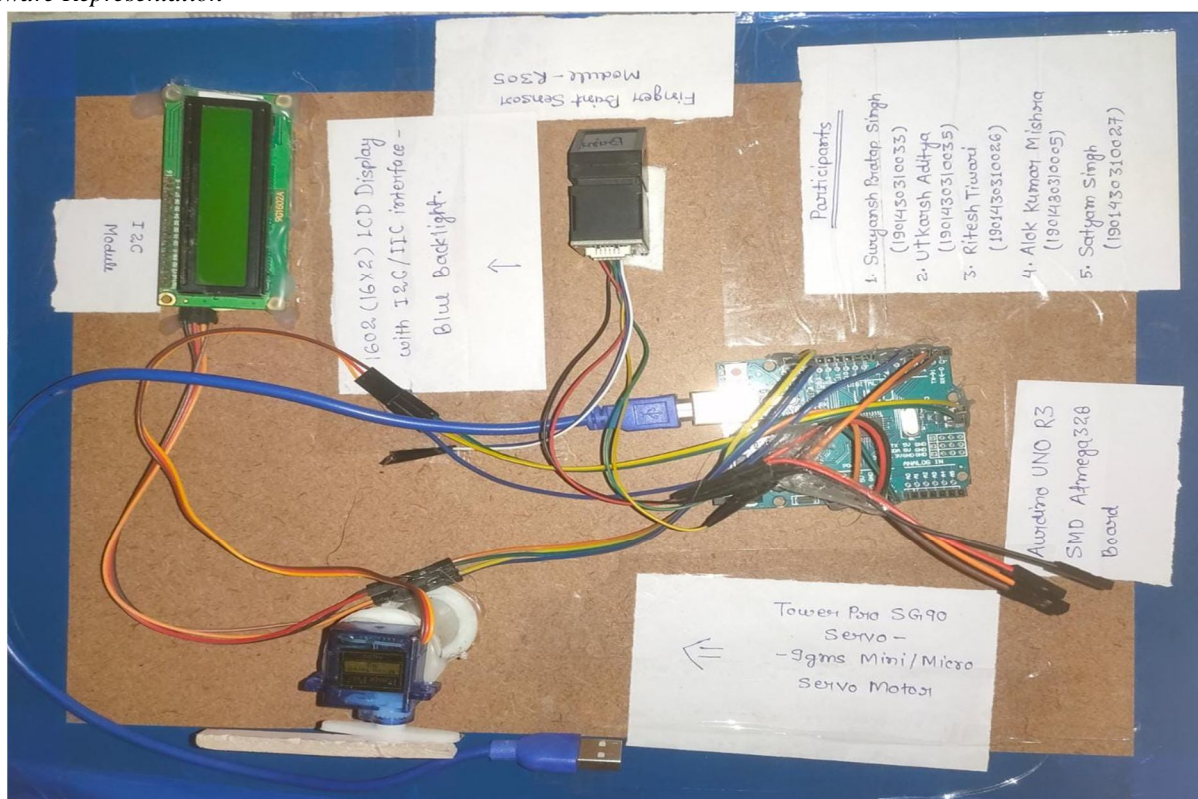 Finger Print Sensor
Module-R305
1602 (16X2) LCD Display
with I2C/IIC interface -
Blue Backlight.
I2C
Module
Participants
1. Suryansh Pratap Singh
(1901430310033)
2. Utkarsh Aditya
(1901430310035)
3. Ritesh Tiwari
(1901430310026)
4. Alok Kumar Mishra
(1901430310005)
5. Satyam Singh
(1901430310027)
Aurdino UNO R3
SMD Atmega328
Board
Tower Pro SG90
Servo -
-9gms Mini/Micro
Servo Motor
ANALOG IN
A0 A1 A2 A3 A4 A5